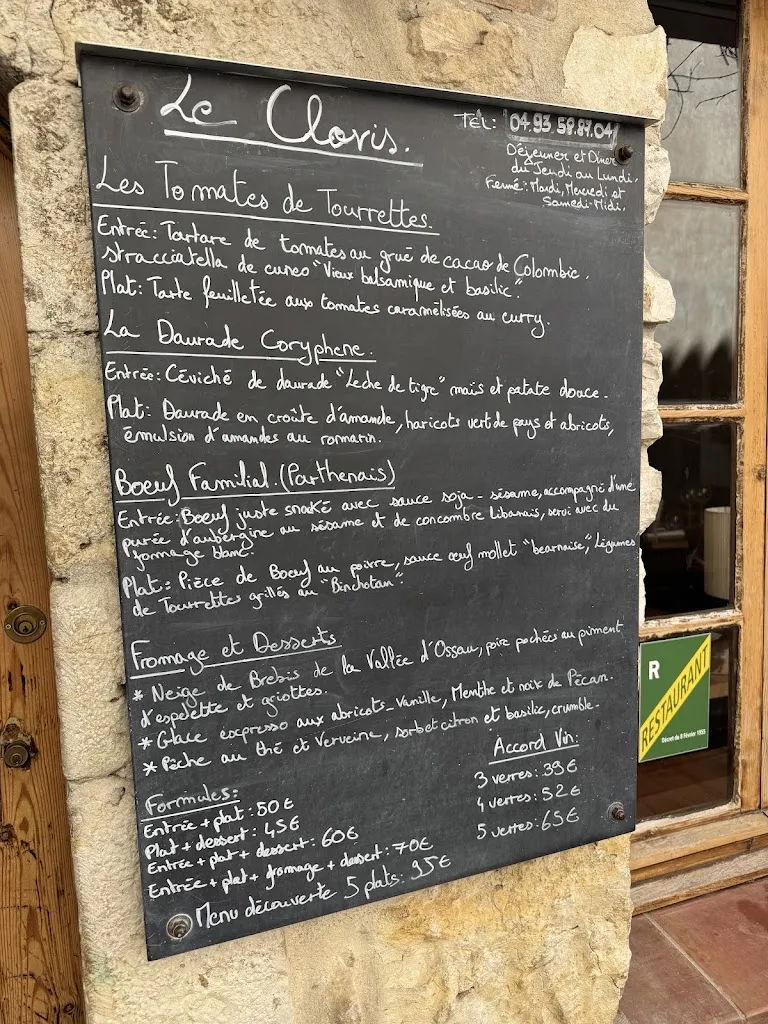 Le Clovis.
Tél: 04.93.58.87.04
Déjeuner et Dîner
du Jeudi au Lundi.
Fermé: Mardi, Mercredi et
Samedi-Midi.
Les Tomates de Tourrettes.
Entrée: Tartare de tomates au grué de cacao de Colombie,
stracciatella de cuneo "Vieux balsamique et basilic".
Plat: Tarte feuilletée aux tomates caramélisées au curry.
La Daurade Coryphene.
Entrée: Céviché de daurade "Leche de tigre" maïs et patate douce.
Plat: Daurade en croûte d'amande, haricots vert de pays et abricots,
émulsion d'amandes au romarin.
Boeuf Familial. (Parthenais)
Entrée: Boeuf juste snaké avec sauce soja-sésame, accompagné d'une
purée d'aubergine au sésame et de concombre Libanais, servi avec du
fromage blanc.
Plat: Pièce de Boeuf au poivre, sauce œuf mollet "bearnaise", Légumes
de Tourrettes grillés au "Binchotan".
Fromage et Desserts
* Neige de Brebis de la Vallée d'Ossau, poire pochées au piment
d'espelette et griottes.
* Glace expresso aux abricots-vanille, Menthe et noix de Pécan.
* Pêche au thé et Verveine, sorbet citron et basilic, crumble.
Formules:
Entrée + plat: 50€
Plat + dessert: 45€
Entrée + plat + dessert: 60€
Entrée + plat + fromage + dessert: 70€
Menu découverte 5 plats: 95€
Accord Vin:
3 verres: 39€
4 verres: 52€
5 verres: 65€
R
RESTAURANT
Décret du 8 Février 1993